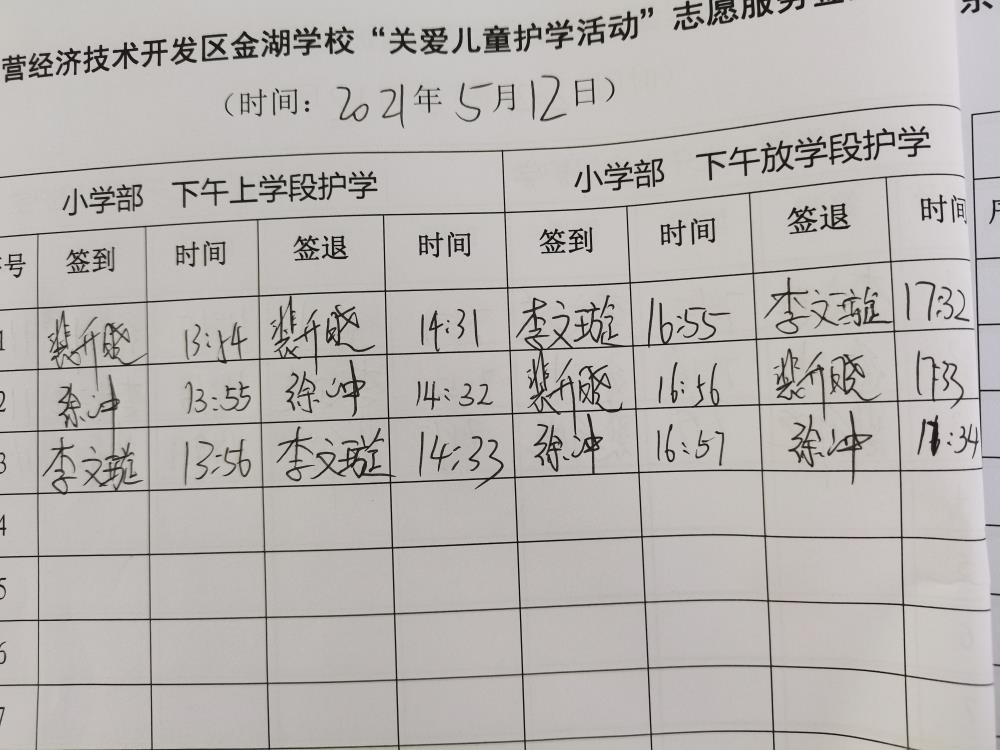 营经济技术开发区金湖学校“关爱儿童护学活动”志愿服务
（时间：2021年5月12日）
小学部 下午上学段护学 小学部 下午放学段护学
号 签到 时间 签退 时间 签到 时间 签退 时间
1 裴升晓 13:54 裴升晓 14:31 李文璇 16:55 李文璇 17:32
2 徐冲 13:55 徐冲 14:32 裴升晓 16:56 裴升晓 17:33
3 李文璇 13:56 李文璇 14:33 徐冲 16:57 徐冲 17:34
4
5
6
7